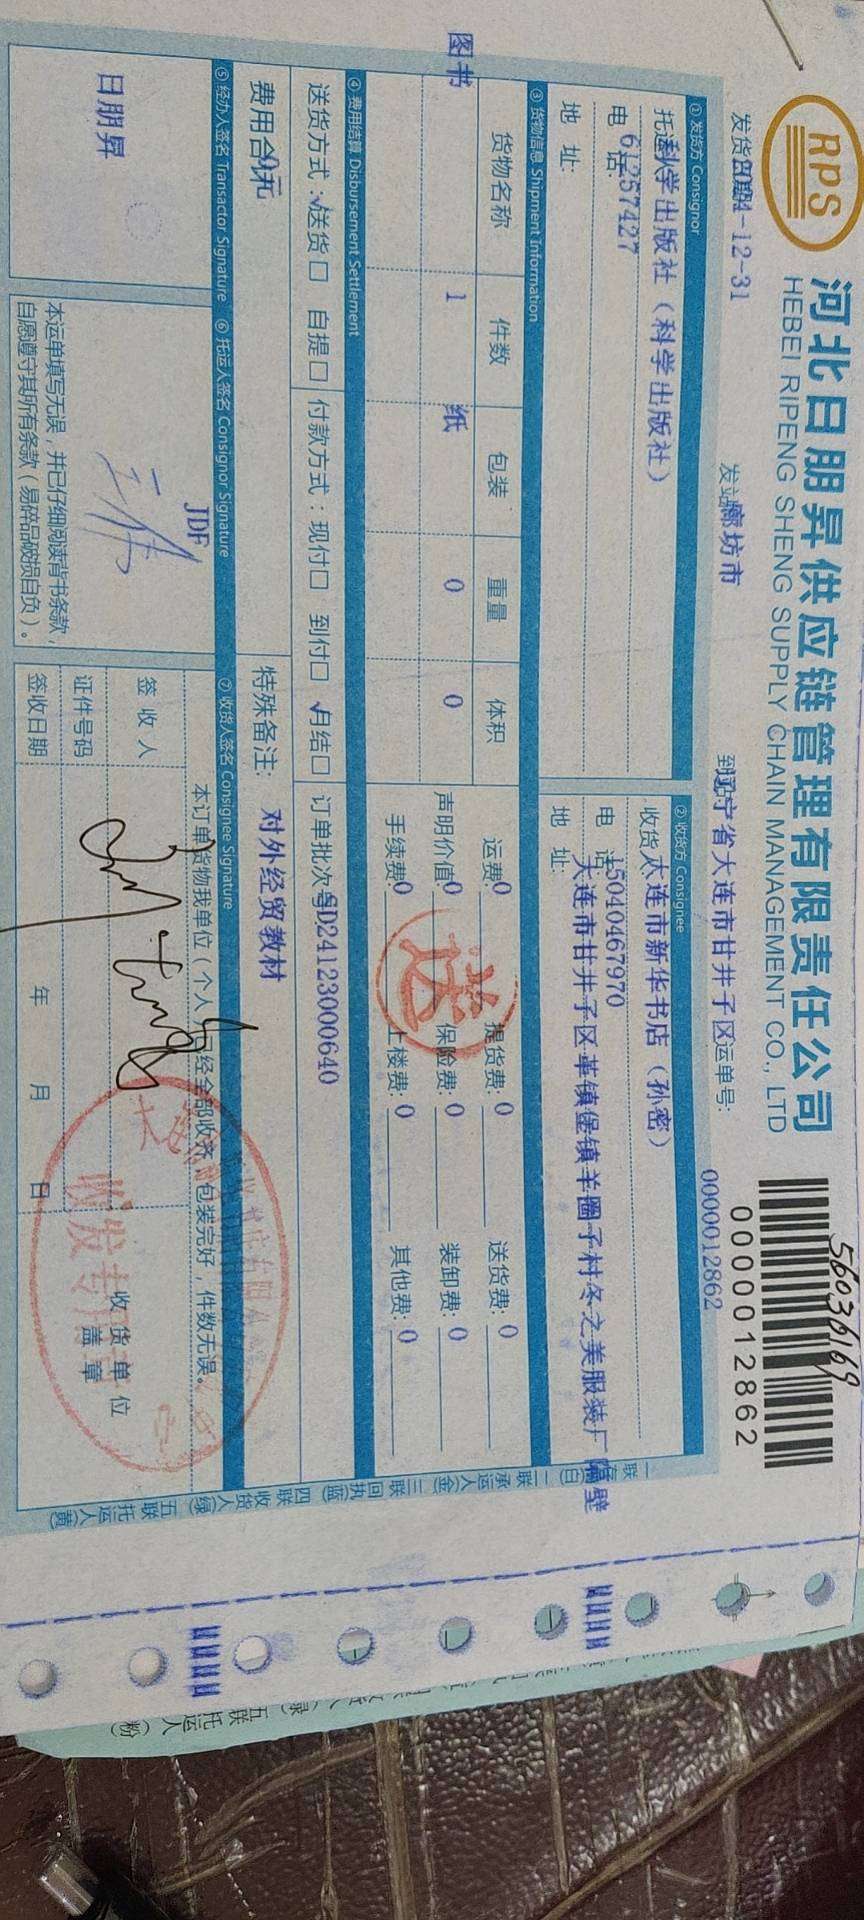 RPS
河北日朋昇供应链管理有限责任公司
HEBEI RIPENG SHENG SUPPLY CHAIN MANAGEMENT CO., LTD
56036169
0000012862
发货日期 2024-12-31
发站 廊坊市
到站 辽宁省大连市甘井子区
运单号: 0000012862
① 发货方 Consignor
托运 科学出版社（科学出版社）
电话 61257427
地 址:
② 收货方 Consignee
收货人 大连市新华书店（孙密）
电 话 15040467970
地 址: 大连市甘井子区革镇堡镇羊圈子村冬之美服装厂隔壁
③ 货物信息 Shipment Information
货物名称 件数 包装 重量 体积
图书 1 纸 0 0
运费: 0 提货费: 0 送货费: 0
声明价值: 0 保险费: 0 装卸费: 0
手续费: 0 上楼费: 0 其他费: 0
送
④ 费用结算 Disbursement Settlement
送货方式: √送货□ 自提□
付款方式: 现付□ 到付□ √月结□
订单批次号 SD24123000640
费用合计 0元
特殊备注: 对外经贸教材
⑤ 经办人签名 Transactor Signature
日朋昇
⑥ 托运人签名 Consignor Signature
JDF
本运单填写无误，并已仔细阅读背书条款，
自愿遵守其所有条款（易碎品破损自负）。
⑦ 收货人签名 Consignee Signature
本订单货物我单位（个人）已经全部收齐，包装完好，件数无误。
签 收 人
证件号码
签收日期 年 月 日
收货单位
盖章
收发专用章
一联 二联 承运人(金) 三联 回执(蓝) 四联 收货人(绿) 五联 托运人(黄)
五联托运人(粉)